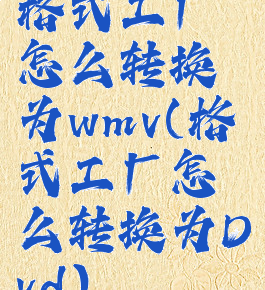 格式工厂
怎么转换
为wmv(格
式工厂怎
么转换为D
vd)